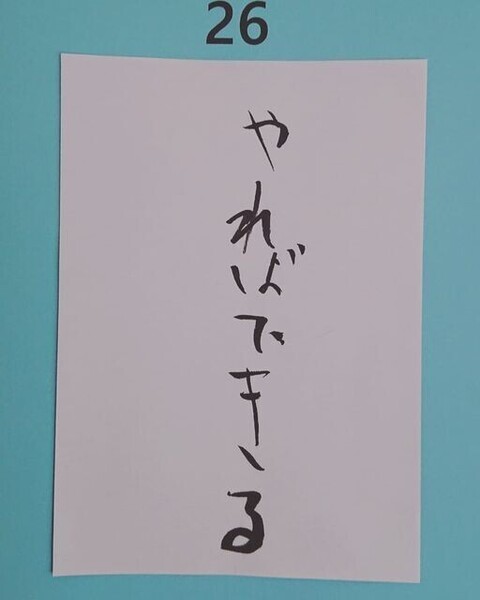 26
やればできる